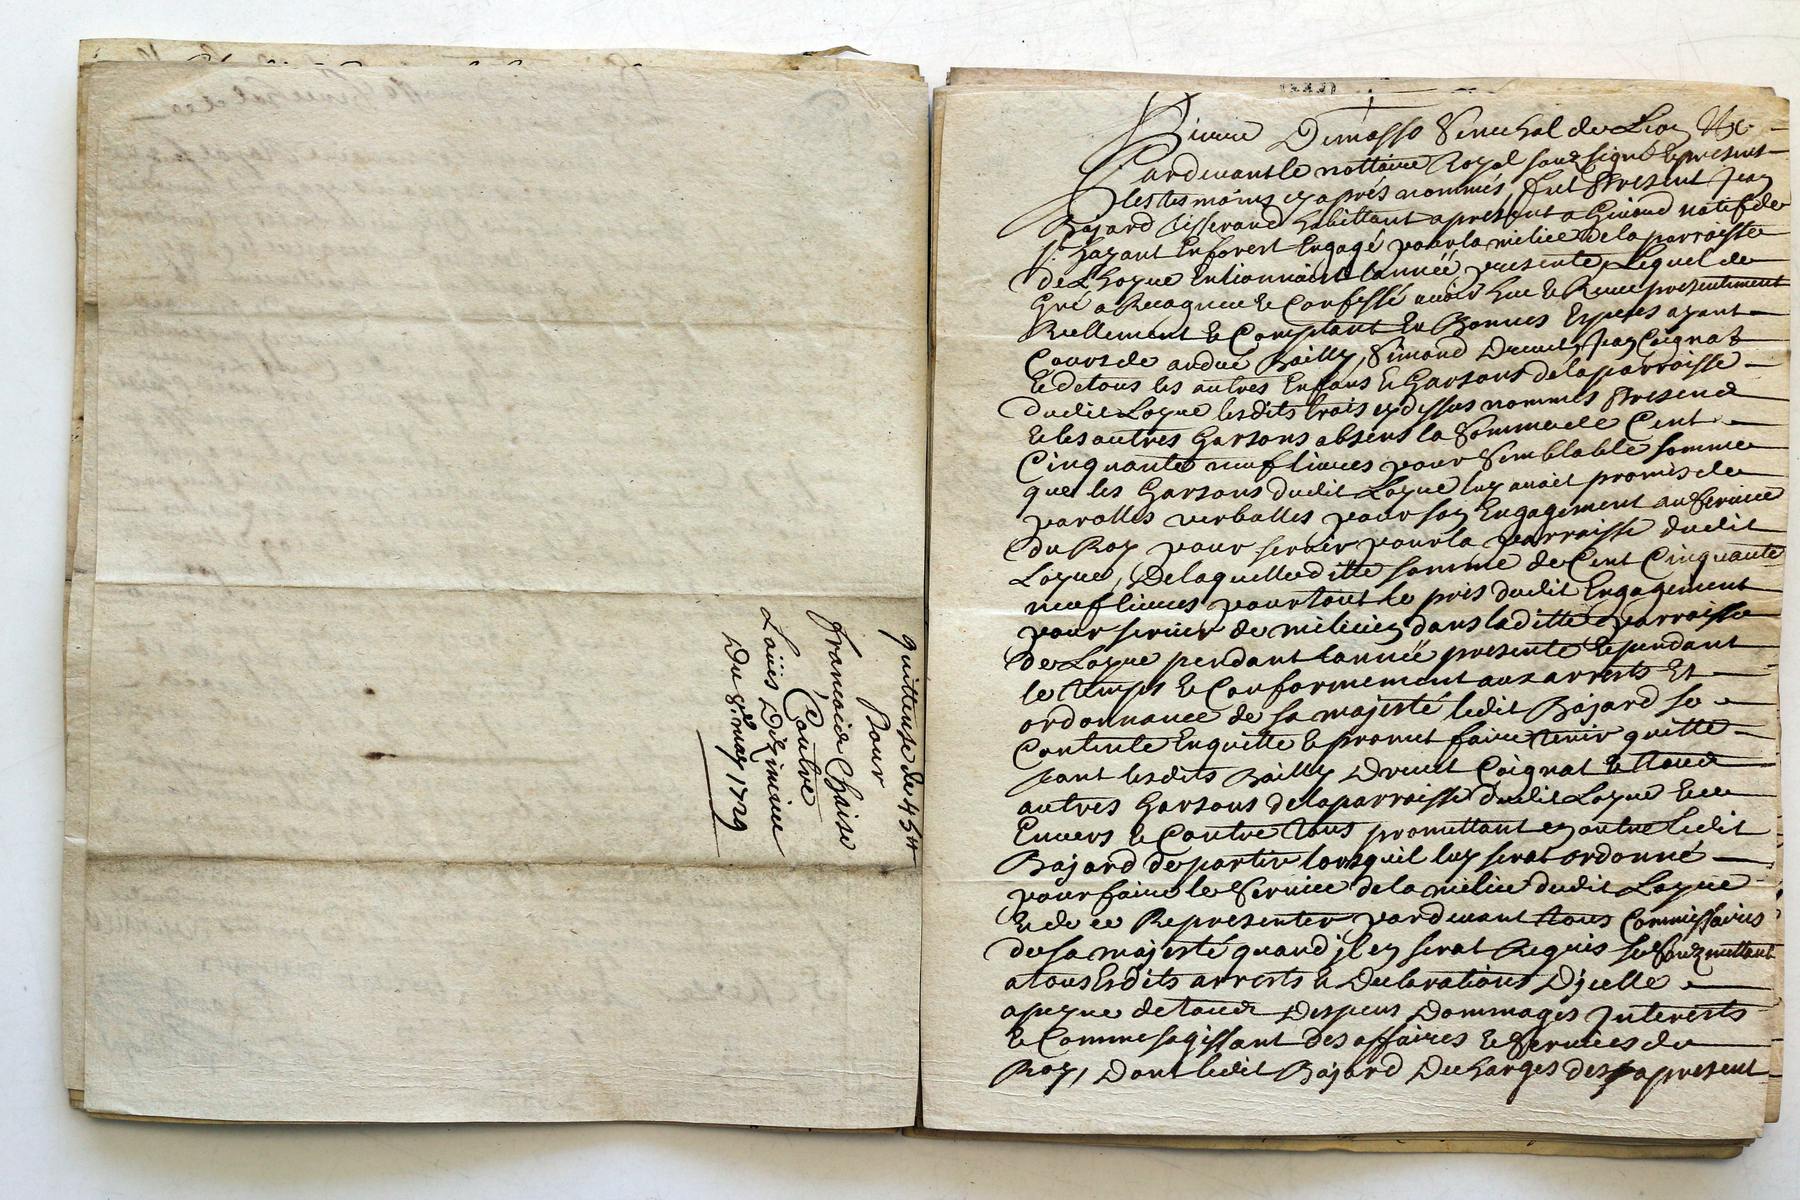 quittense de 45 ₶
Pour
francoise Chaise
Contre
Loüis
Du 8.e may 1729
Pierre Demasso Senechal de Lion &c
Pardevant le nottaire Royal souz signé Et present
les tesmoins cy aprés nommés, fut Present Jean
Bajard tisserand habittant apresent a natif de
st hazant En forest Engagé pour la milice de la parroisse
de L'hoyue En lionnaiz lannéé presente, Lequel de
Gré a Recogneu & Confessé avoir heu & Receu presentement
Reellement & Comptant En Bonnes Especes ayant
Cours de André Bailly, Simond Drevet, Jean Coignat
& de tous les autres Enfans & Garsons de la parroisse
dudit Loyue lesdits trois cy dessus nommés Present
& les autres Garsons absens la Somme de Cent
Cinquante neuf livres pour Semblable somme
que les Garsons dudit Loyue luy avoit promis de
parolles verballes pour son Engagement au Service
du Roy pour servir pour la parroisse dudit
Loyue, De laquelle ditte somme de Cent Cinquante
neuf livres pour tout le pris dudit Engagement
pour servir de milicien dans la ditte parroisse
de Loyue pendant lannéé presente & pendant
le temps & Conformement aux arrests Et
ordonnance de sa majesté ledit Bajard se
Contente En quitte & promet faire tenir quitte
tant lesdits Bailly Drevet Coignat & tous
autres Garsons de la parroisse dudit Loyue
Envers & Contre tous promettant en outre ledit
Bajard de partir lorsquil luy serat ordonné
pour faire le Service de la milice dudit Loyue
& de ce Representer pardevant tous Commissaires
de sa majesté quand jl en serat Requis se souzmettant
a tous Esdits arrests & Declarations Djcelle
apeyne de tous Despens Dommages Interests
& Comme sagissant des affaires & Services du
Roy, Dont ledit Bajard Decharges des apresent